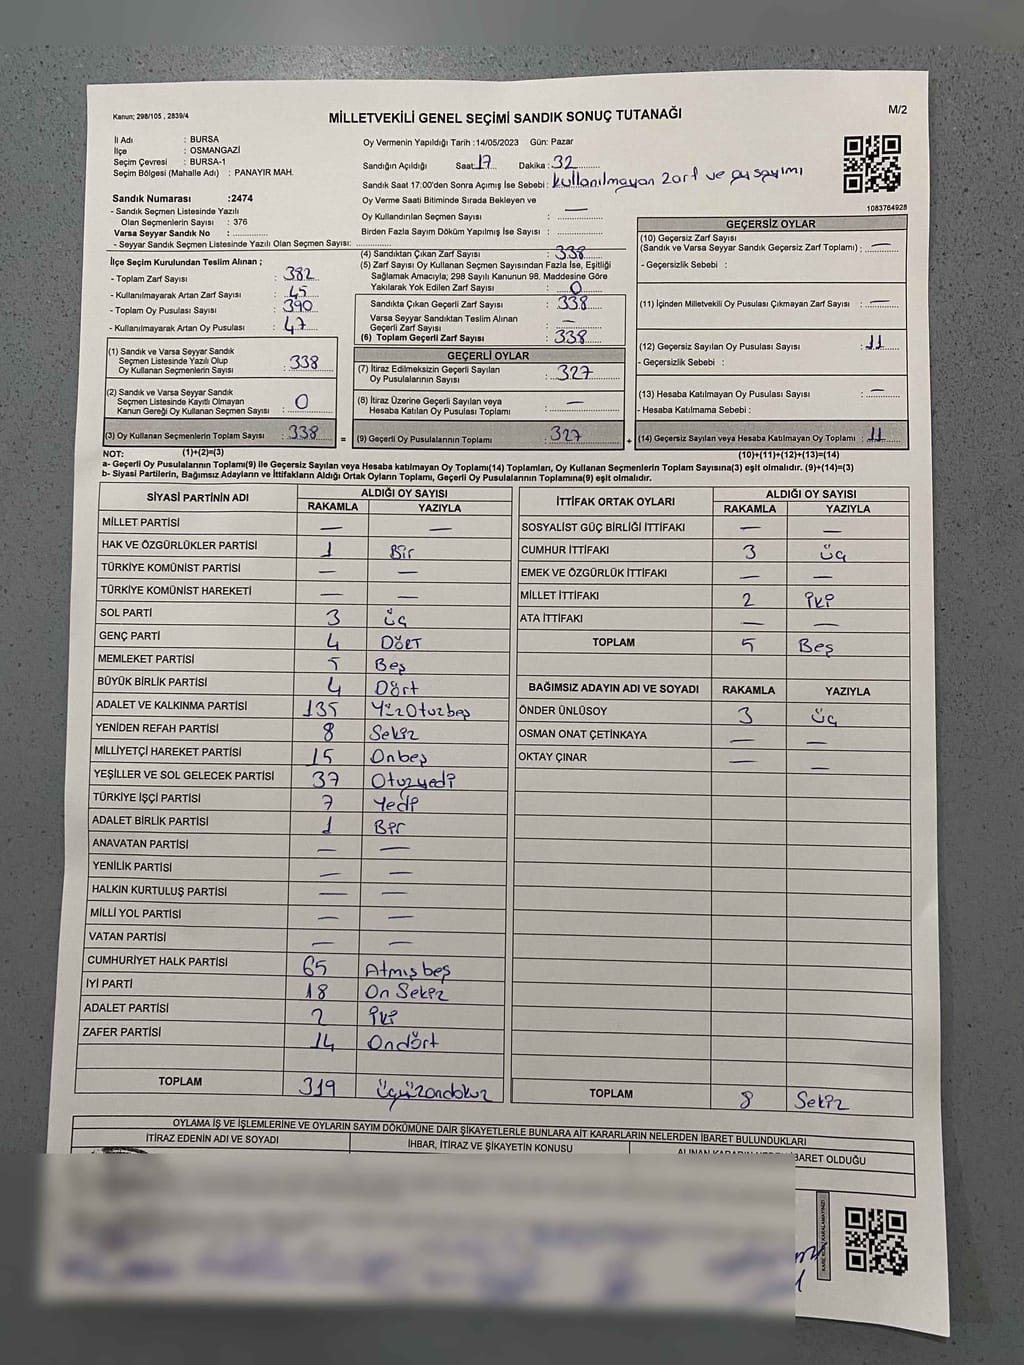 Kanun; 298/105 , 2839/4
MİLLETVEKİLİ GENEL SEÇİMİ SANDIK SONUÇ TUTANAĞI
M/2
İl Adı : BURSA
İlçe : OSMANGAZİ
Seçim Çevresi : BURSA-1
Seçim Bölgesi (Mahalle Adı) : PANAYIR MAH.
Sandık Numarası :2474
- Sandık Seçmen Listesinde Yazılı
Olan Seçmenlerin Sayısı : 376
Varsa Seyyar Sandık No :
- Seyyar Sandık Seçmen Listesinde Yazılı Olan Seçmen Sayısı:
Oy Vermenin Yapıldığı Tarih :14/05/2023 Gün: Pazar
Sandığın Açıldığı Saat 17 Dakika : 32
Sandık Saat 17:00'den Sonra Açımış İse Sebebi : Kullanılmayan zarf ve oy sayımı
Oy Verme Saati Bitiminde Sırada Bekleyen ve
Oy Kullandırılan Seçmen Sayısı : —
Birden Fazla Sayım Döküm Yapılmış İse Sayısı :
1083764928
İlçe Seçim Kurulundan Teslim Alınan ;
- Toplam Zarf Sayısı : 382
- Kullanılmayarak Artan Zarf Sayısı : 45
- Toplam Oy Pusulası Sayısı : 390
- Kullanılmayarak Artan Oy Pusulası : 47
(1) Sandık ve Varsa Seyyar Sandık
Seçmen Listesinde Yazılı Olup
Oy Kullanan Seçmenlerin Sayısı : 338
(2) Sandık ve Varsa Seyyar Sandık
Seçmen Listesinde Kayıtlı Olmayan
Kanun Gereği Oy Kullanan Seçmen Sayısı : 0
(3) Oy Kullanan Seçmenlerin Toplam Sayısı : 338
(4) Sandıktan Çıkan Zarf Sayısı : 338
(5) Zarf Sayısı Oy Kullanan Seçmen Sayısından Fazla İse, Eşitliği
Sağlamak Amacıyla; 298 Sayılı Kanunun 98. Maddesine Göre
Yakılarak Yok Edilen Zarf Sayısı : 0
Sandıkta Çıkan Geçerli Zarf Sayısı : 338
Varsa Seyyar Sandıktan Teslim Alınan
Geçerli Zarf Sayısı : —
(6) Toplam Geçerli Zarf Sayısı : 338
GEÇERLİ OYLAR
(7) İtiraz Edilmeksizin Geçerli Sayılan
Oy Pusulalarının Sayısı : 327
(8) İtiraz Üzerine Geçerli Sayılan veya
Hesaba Katılan Oy Pusulası Toplamı : —
= (9) Geçerli Oy Pusulalarının Toplamı : 327
GEÇERSİZ OYLAR
(10) Geçersiz Zarf Sayısı
(Sandık ve Varsa Seyyar Sandık Geçersiz Zarf Toplamı) : —
- Geçersizlik Sebebi :
(11) İçinden Milletvekili Oy Pusulası Çıkmayan Zarf Sayısı : —
(12) Geçersiz Sayılan Oy Pusulası Sayısı : 11
- Geçersizlik Sebebi :
(13) Hesaba Katılmayan Oy Pusulası Sayısı : —
- Hesaba Katılmama Sebebi :
+ (14) Geçersiz Sayılan veya Hesaba Katılmayan Oy Toplamı : 11
NOT: (1)+(2)=(3) (10)+(11)+(12)+(13)=(14)
a- Geçerli Oy Pusulalarının Toplamı(9) ile Geçersiz Sayılan veya Hesaba katılmayan Oy Toplamı(14) Toplamları, Oy Kullanan Seçmenlerin Toplam Sayısına(3) eşit olmalıdır. (9)+(14)=(3)
b- Siyasi Partilerin, Bağımsız Adayların ve İttifakların Aldığı Ortak Oyların Toplamı, Geçerli Oy Pusulalarının Toplamına(9) eşit olmalıdır.
SİYASİ PARTİNİN ADI ALDIĞI OY SAYISI
RAKAMLA YAZIYLA
MİLLET PARTİSİ — —
HAK VE ÖZGÜRLÜKLER PARTİSİ 1 Bir
TÜRKİYE KOMÜNİST PARTİSİ — —
TÜRKİYE KOMÜNİST HAREKETİ — —
SOL PARTİ 3 üç
GENÇ PARTİ 4 Dört
MEMLEKET PARTİSİ 5 Beş
BÜYÜK BİRLİK PARTİSİ 4 Dört
ADALET VE KALKINMA PARTİSİ 135 YüzOtuzbeş
YENİDEN REFAH PARTİSİ 8 Sekiz
MİLLİYETÇİ HAREKET PARTİSİ 15 Onbeş
YEŞİLLER VE SOL GELECEK PARTİSİ 37 Otuzyedi
TÜRKİYE İŞÇİ PARTİSİ 7 Yedi
ADALET BİRLİK PARTİSİ 1 Bir
ANAVATAN PARTİSİ — —
YENİLİK PARTİSİ — —
HALKIN KURTULUŞ PARTİSİ — —
MİLLİ YOL PARTİSİ — —
VATAN PARTİSİ — —
CUMHURİYET HALK PARTİSİ 65 Atmışbeş
İYİ PARTİ 18 On Sekiz
ADALET PARTİSİ 2 İki
ZAFER PARTİSİ 14 Ondört
TOPLAM 319 üçyüzondokuz
İTTİFAK ORTAK OYLARI ALDIĞI OY SAYISI
RAKAMLA YAZIYLA
SOSYALİST GÜÇ BİRLİĞİ İTTİFAKI — —
CUMHUR İTTİFAKI 3 üç
EMEK VE ÖZGÜRLÜK İTTİFAKI — —
MİLLET İTTİFAKI 2 İki
ATA İTTİFAKI — —
TOPLAM 5 Beş
BAĞIMSIZ ADAYIN ADI VE SOYADI RAKAMLA YAZIYLA
ÖNDER ÜNLÜSOY 3 üç
OSMAN ONAT ÇETİNKAYA — —
OKTAY ÇINAR — —
TOPLAM 8 Sekiz
OYLAMA İŞ VE İŞLEMLERİNE VE OYLARIN SAYIM DÖKÜMÜNE DAİR ŞİKAYETLERLE BUNLARA AİT KARARLARIN NELERDEN İBARET BULUNDUKLARI
İTİRAZ EDENİN ADI VE SOYADI İHBAR, İTİRAZ VE ŞİKAYETİN KONUSU İBARET OLDUĞU